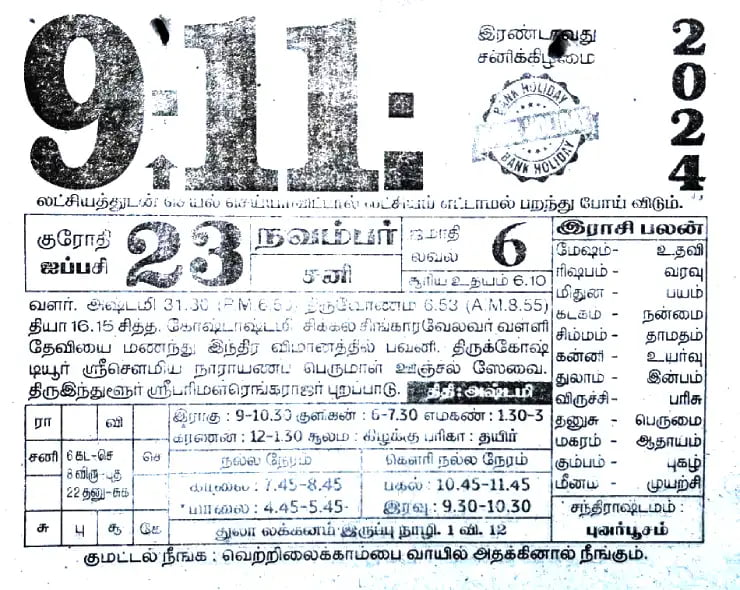 9-11-2024
இரண்டாவது
சனிக்கிழமை
BANK HOLIDAY
BANK HOLIDAY
லட்சியத்துடன் செயல் செய்யாவிட்டால் லட்சியம் எட்டாமல் பறந்து போய் விடும்.
குரோதி
ஐப்பசி
23
நவம்பர்
சனி
ஜமாதி
லவல்
6
சூரிய உதயம் 6.10
வளர். அஷ்டமி 31.30 (P.M.6.50) திருவோணம் 6.53 (A.M.8.55)
தியா 16.15 சித்த. கோஷ்டாஷ்டமி. சிக்கல் சிங்காரவேலவர் வள்ளி
தேவியை மணந்து இந்திர விமானத்தில் பவனி. திருக்கோஷ்
டியூர் ஸ்ரீசௌமிய நாராயணப் பெருமாள் ஊஞ்சல் ஸேவை.
திருஇந்துளூர் ஸ்ரீபரிமளரெங்கராஜர் புறப்பாடு. திதி: அஷ்டமி
இராசி பலன்
மேஷம் - உதவி
ரிஷபம் - வரவு
மிதுன - பயம்
கடகம் - நன்மை
சிம்மம் - தாமதம்
கன்னி - உயர்வு
துலாம் - இன்பம்
விருச்சி - பரிசு
தனுசு - பெருமை
மகரம் - ஆதாயம்
கும்பம் - புகழ்
மீனம் - முயற்சி
சந்திராஷ்டமம் :
புனர்பூசம்
ரா வி
சனி 6 கட-செ செ
8 விரு-புத
22 தனு-சுக
சு பு சூ கே
இராகு : 9-10.30 குளிகன் : 6-7.30 எமகண் : 1.30-3
கரணன் : 12-1.30 சூலம் : கிழக்கு பரிகா : தயிர்
நல்ல நேரம்
காலை : 7.45-8.45
மாலை : 4.45-5.45
கௌரி நல்ல நேரம்
பகல் : 10.45-11.45
இரவு : 9.30-10.30
துலா லக்கனம் இருப்பு நாழி. 1 வி. 12
குமட்டல் நீங்க : வெற்றிலைக்காம்பை வாயில் அதக்கினால் நீங்கும்.